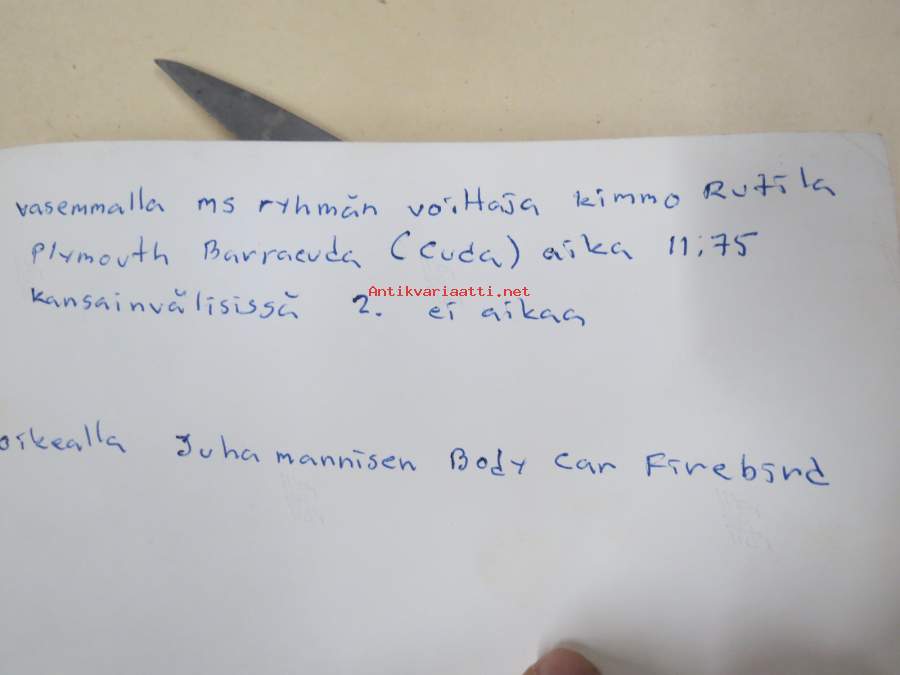 vasemmalla ms ryhmän voittaja kimmo Rutila
Plymouth Barracuda (Cuda) aika 11;75
Antikvariaatti.net
kansainvälisissä 2. ei aikaa
oikealla Juha mannisen Body Car Firebird